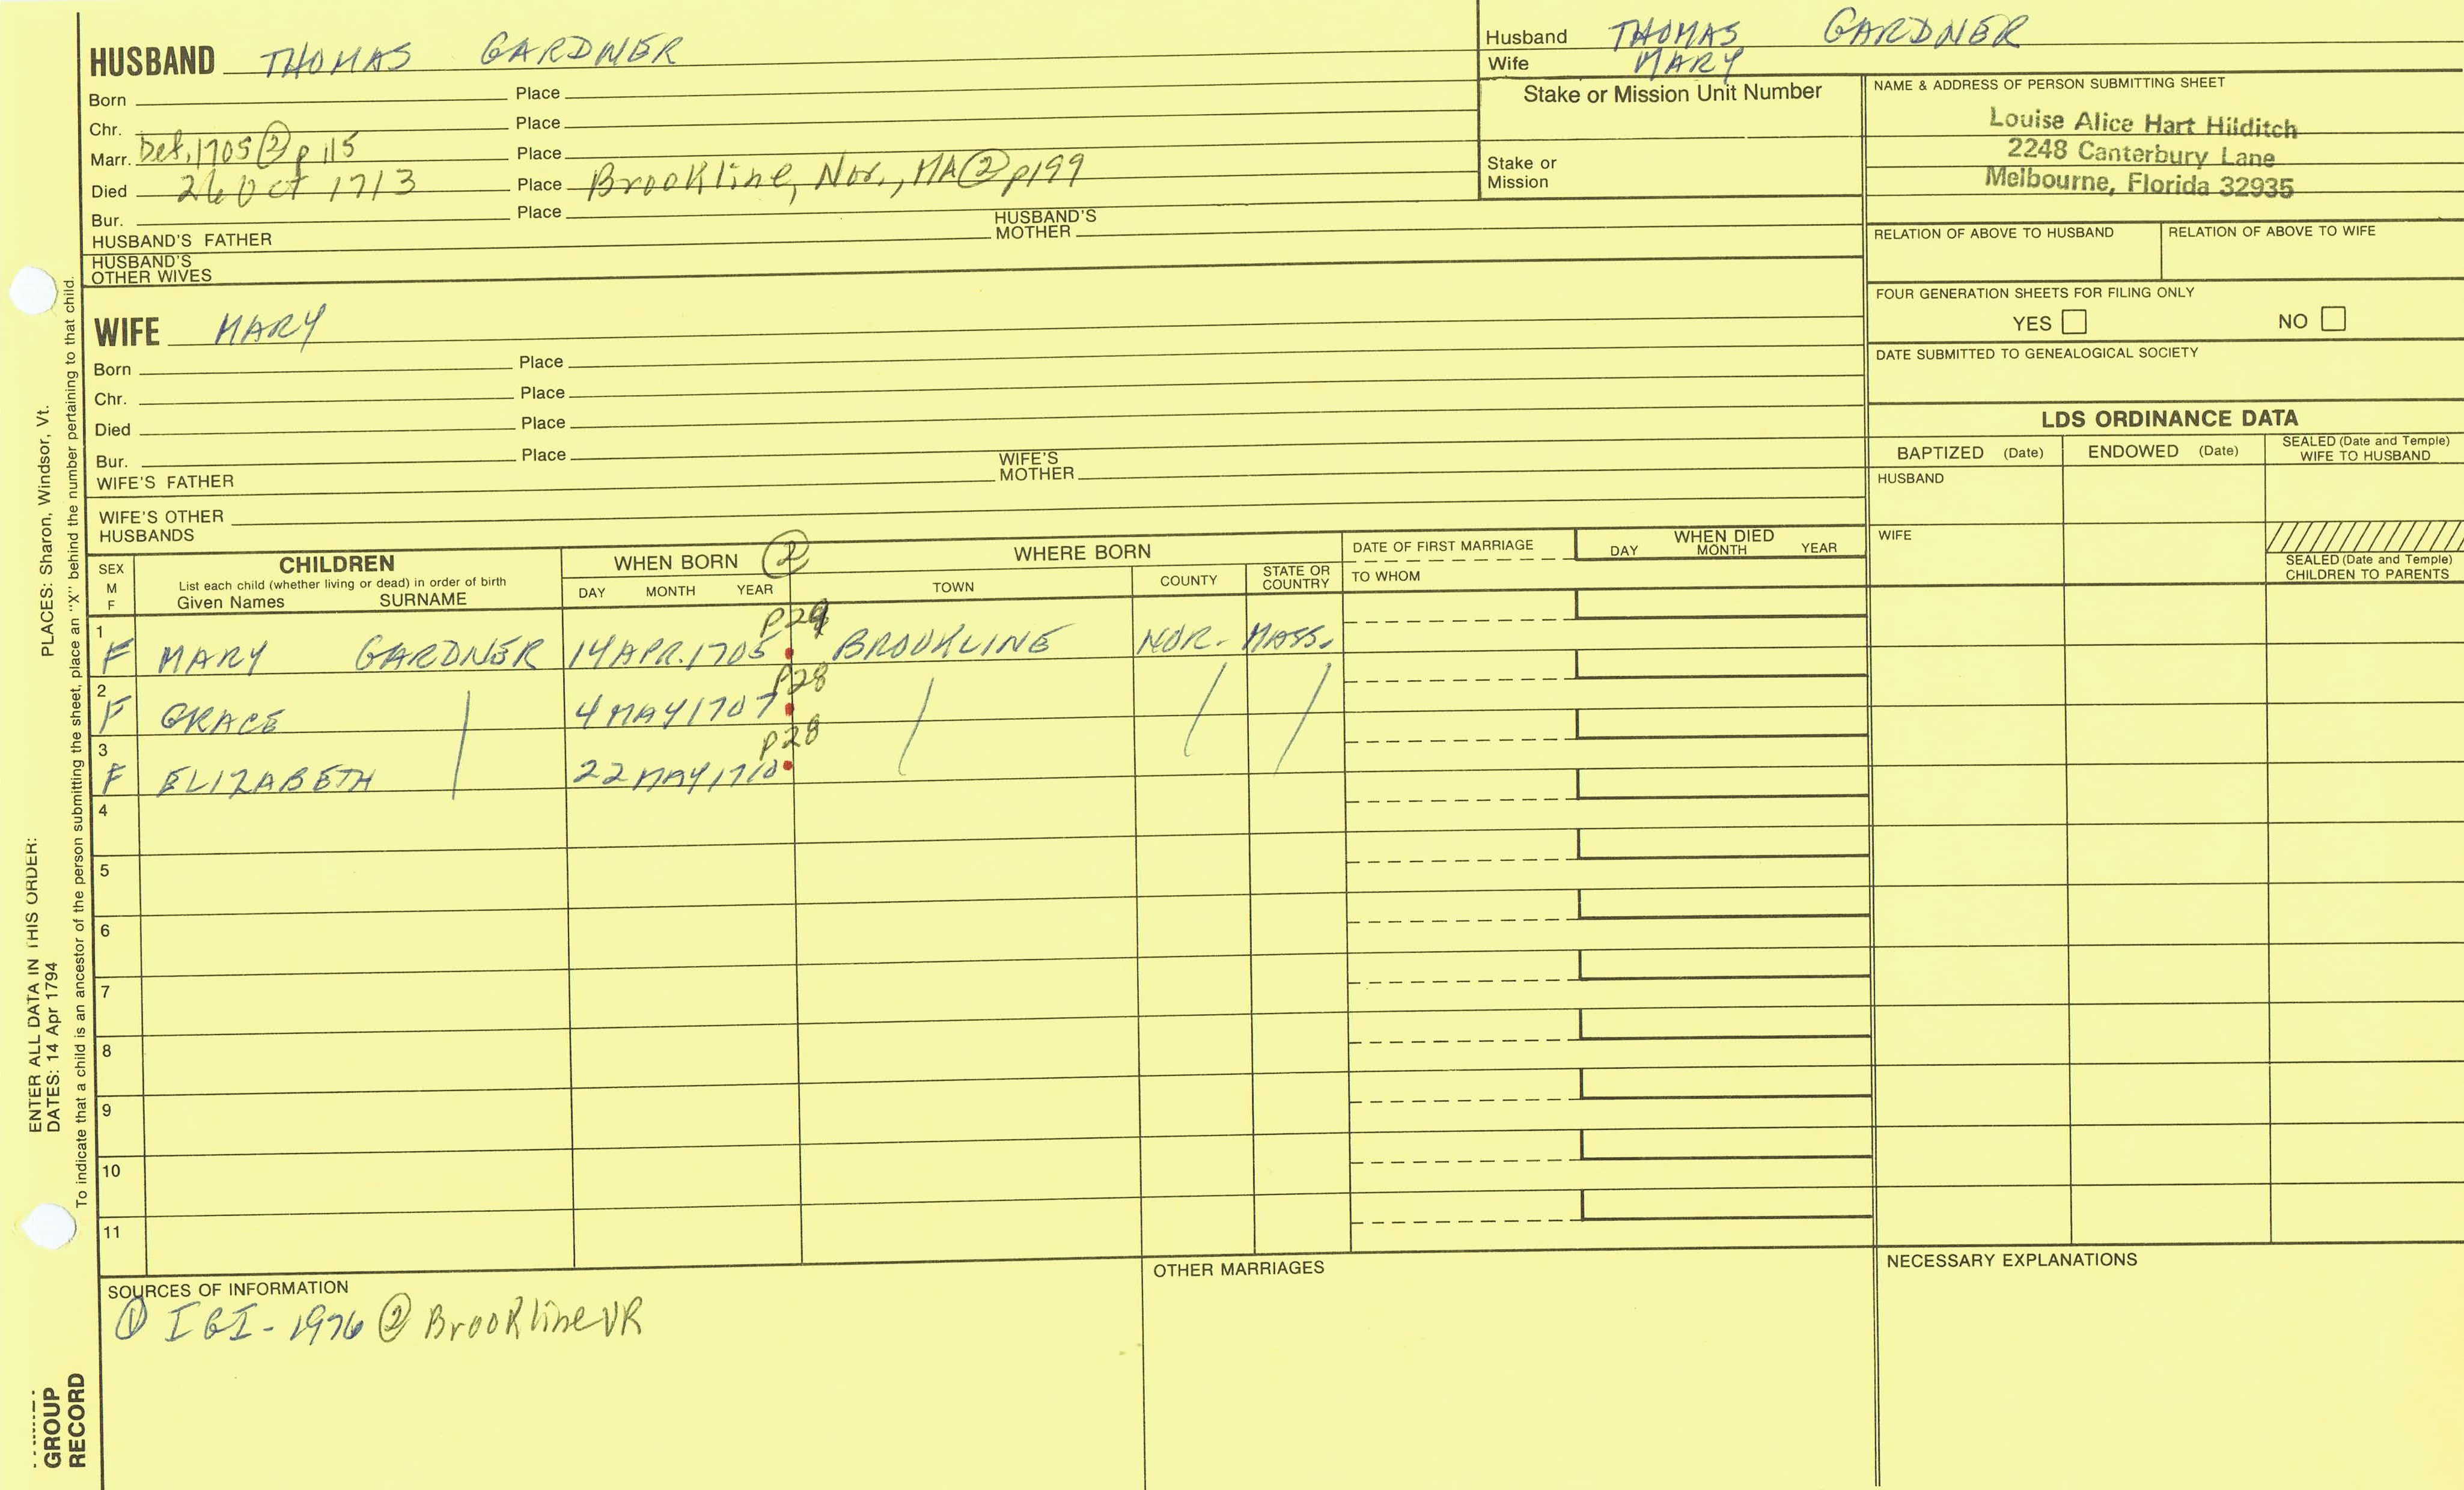 HUSBAND THOMAS GARDNER
Born Place
Chr. Place
Marr. Bef. 1705 ② p 115 Place
Died 26 Oct 1713 Place Brookline, Nor., MA ② p199
Bur. Place
HUSBAND'S FATHER HUSBAND'S MOTHER
HUSBAND'S OTHER WIVES
Husband THOMAS GARDNER
Wife MARY
Stake or Mission Unit Number
Stake or Mission
NAME & ADDRESS OF PERSON SUBMITTING SHEET
Louise Alice Hart Hilditch
2248 Canterbury Lane
Melbourne, Florida 32935
RELATION OF ABOVE TO HUSBAND RELATION OF ABOVE TO WIFE
FOUR GENERATION SHEETS FOR FILING ONLY
YES NO
DATE SUBMITTED TO GENEALOGICAL SOCIETY
WIFE MARY
Born Place
Chr. Place
Died Place
Bur. Place
WIFE'S FATHER WIFE'S MOTHER
WIFE'S OTHER HUSBANDS
LDS ORDINANCE DATA
BAPTIZED (Date) ENDOWED (Date) SEALED (Date and Temple) WIFE TO HUSBAND
HUSBAND
WIFE
SEALED (Date and Temple) CHILDREN TO PARENTS
SEX M F
CHILDREN
List each child (whether living or dead) in order of birth
Given Names SURNAME
WHEN BORN ②
DAY MONTH YEAR
WHERE BORN
TOWN COUNTY STATE OR COUNTRY
DATE OF FIRST MARRIAGE
TO WHOM
WHEN DIED
DAY MONTH YEAR
1 F MARY GARDNER 14 APR. 1705 BROOKLINE NOR. MASS.
p28
2 F GRACE 4 MAY 1707
p28
3 F ELIZABETH 22 MAY 1710
4
5
6
7
8
9
10
11
SOURCES OF INFORMATION
① IGI - 1976 ② Brookline VR
OTHER MARRIAGES
NECESSARY EXPLANATIONS
ENTER ALL DATA IN THIS ORDER:
DATES: 14 Apr 1794
PLACES: Sharon, Windsor, Vt.
To indicate that a child is an ancestor of the person submitting the sheet, place an "X" behind the number pertaining to that child.
GROUP
RECORD